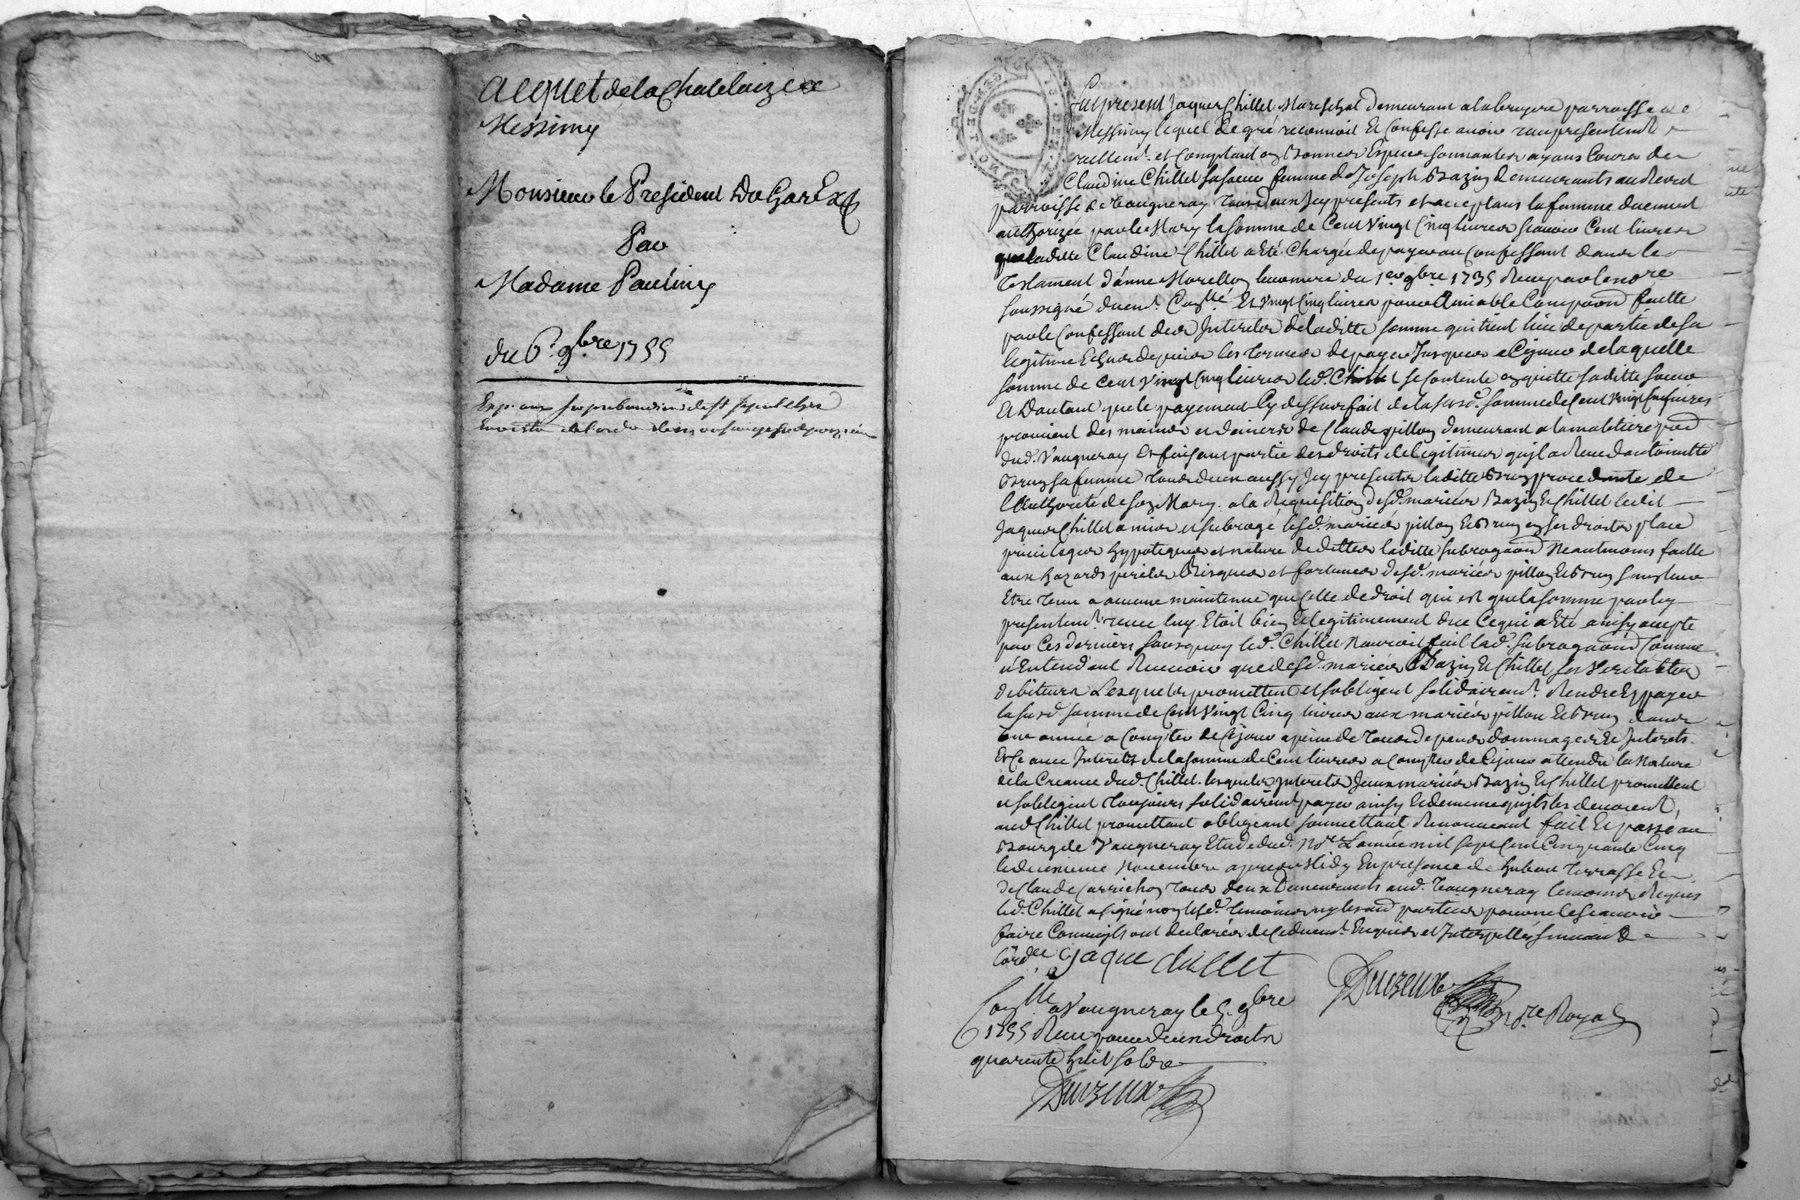 Acquet de la Chatelaize
Messimy
Monsieur le President Du Gar Ext
Par
Madame Pauliny
du 6e 9bre 1755
GENERALITE DE LYON
Fut present Jaques Chillet Mareschal demeurant a la bruyere parroisse de
Messimy lequel de gré reconnoit et Confesse avoir eu presentemt
reellemt et Comptant en Bonnes Especes sonnantes ayans Cours de
Claudine Chillet sa soeur femme de Joseph Bazin demeurants au
parroisse de Vaugneray tous deux Icy presents et acceptans la femme duement
authorizée par le Mary la somme de Cent Vingt Cinq livres sçavoir Cent livres
que laditte Claudine Chillet a Eté Chargée de payer au Confessant dans le
Testament d'anne Morellon leur mere du 1er 9bre 1735 Reçu par le nore
soussigné duemt Conllé Et Vingt Cinq livres pour Amiable Compoon faitte
par le Confessant des Interets de laditte somme qui tient lieu de partie de sa
legitime Echue depuis les termes de payer Jusques a Cejour de laquelle
somme de Cent Vingt Cinq livres led. Chillet se contente en quitte laditte soeur
Et Dautant que le payement Cy dessus fait de la susd. somme de Cent Vingt Cinq livres
provient des mains et deniers de Claude pillon demeurant a la maletiere psse
dud. Vaugneray Et faisant partie des droits de legitimes qu'il a Reçu dantoinette
Brun sa femme tous deux aussy Icy presents laditte Brun procedante de
l'Authorité de son Mary. a la Requisition desd. mariés Bazin Et Chillet ledit
Jaques Chillet a mis et subrogé lesd. mariés pillon Et Brun en ses droits place
privileges hypoteques et nature de dettes laditte subrogaon Neantmoins faitte
aux hazards perils Risques et fortunes desd. mariés pillon Et Brun sans luy
Etre tenu a aucune maintenue que Celle de droit qui est que la somme par luy
presentemt reçue luy Etoit bien Et legitimement due Ce qui a Eté ainsy accepté
par Ces derniers sans quoy led. Chillet N'auroit fait lad. subrogaon Comme
n'Entendant Recevoir que desd. mariés Bazin Et Chillet ses veritables
debiteurs Lesquels promettent et sobligent solidairemt Rendre Et payer
la susd. somme de Cent Vingt Cinq livres aux mariés pillon Et Brun dans
une année a Compter de Cejour a peine de tous depens dommages Et Interets
Et Ce avec Interets de la somme de Cent livres a Compter de Cejour attendu la Nature
de la Creance dud. Chillet. lesquels Interets Iceux mariés Bazin Et Chillet promettent
et sobligent toujours solidairemt payer ainsy Et de meme qu'ils les devoient
aud. Chillet promettant obligeant soumettant Renonceant fait Et passé au
Bourg de Vaugneray Etude dud. Nore L'année mil sept Cent Cinquante Cinq
le deuxieme Novembre apres Midy En presence de hubert terrasse Et
de Claude Carrichon tous deux Demeurants aud. Vaugneray temoins Requis
led. Chillet a signé non lesd. temoins ny les aud. parties pour ne le sçavoir
faire Comm'ils ont declarés de Ce duemt Enquis et Interpellés suivant
Lord.ce Jaque chillet
Duizeux Nore Royal
Conllé a Vaugneray le 5. 9bre
1755 Reçu pour deux droits
quarente huit sols
Duizeux